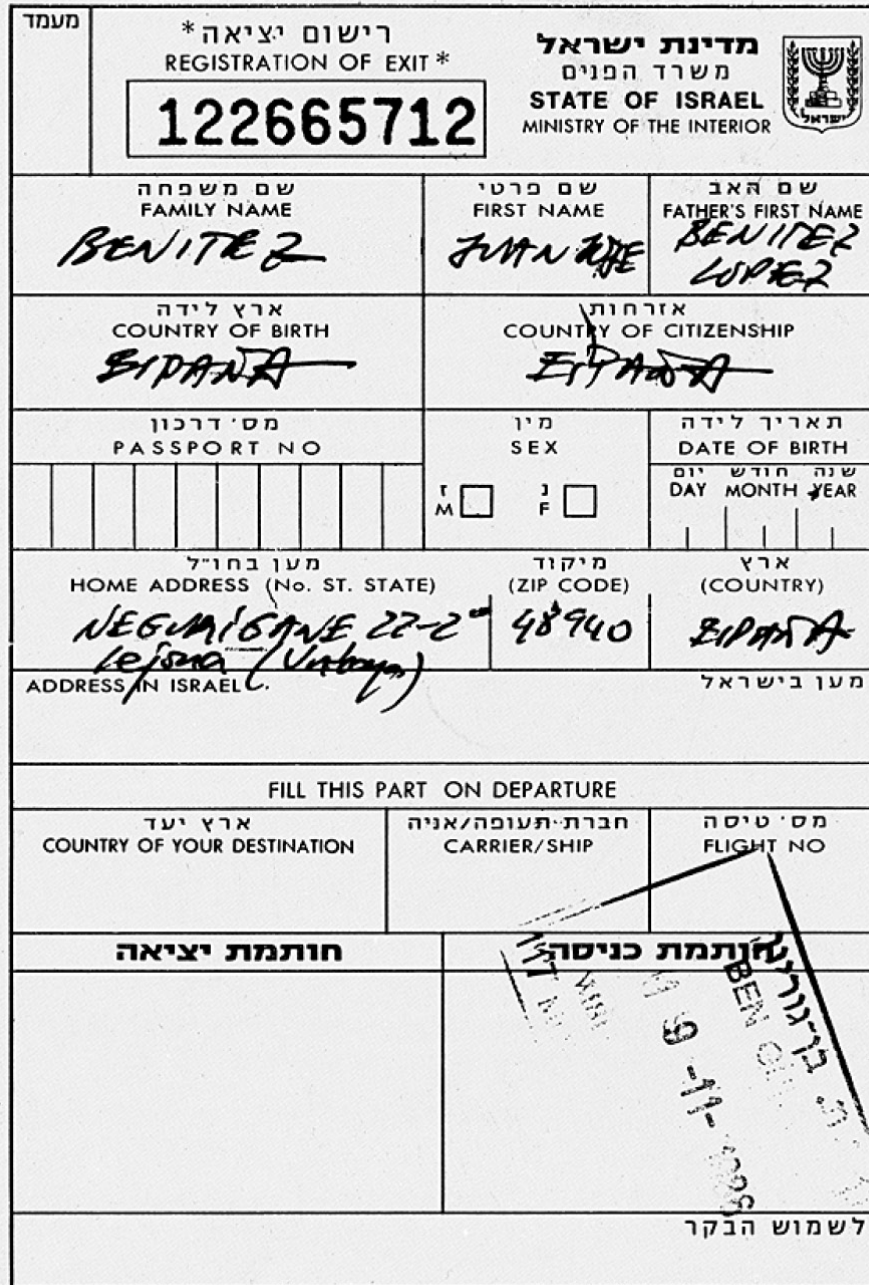 מעמד
רישום יציאה*
REGISTRATION OF EXIT*
122665712
מדינת ישראל
משרד הפנים
STATE OF ISRAEL
MINISTRY OF THE INTERIOR
ישראל
שם משפחה
FAMILY NAME
BENITEZ
שם פרטי
FIRST NAME
JUAN JOSE
שם האב
FATHER'S FIRST NAME
BENITEZ
LOPEZ
ארץ לידה
COUNTRY OF BIRTH
ESPAÑA
אזרחות
COUNTRY OF CITIZENSHIP
ESPAÑA
מס' דרכון
PASSPORT NO
מין
SEX
ז
M
נ
F
תאריך לידה
DATE OF BIRTH
יום חודש שנה
DAY MONTH YEAR
מען בחו"ל
HOME ADDRESS (No. ST. STATE)
22-2
Lejona
מיקוד
(ZIP CODE)
48940
ארץ
(COUNTRY)
ESPAÑA
ADDRESS IN ISRAEL
מען בישראל
FILL THIS PART ON DEPARTURE
ארץ יעד
COUNTRY OF YOUR DESTINATION
חברת תעופה/אניה
CARRIER/SHIP
מס' טיסה
FLIGHT NO
חותמת יציאה
חותמת כניסה
בן-גוריון
BEN
9-11-
לשמוש הבקר